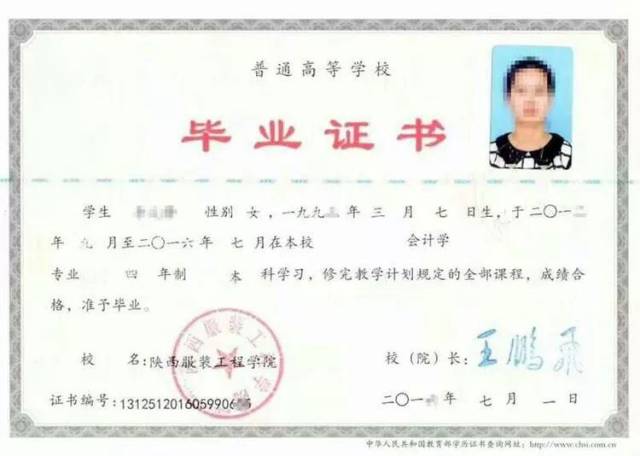 普通高等学校
毕业证书
学生 性别 女，一九九 年 三 月 七 日生，于二〇一
年 九 月至二〇一六年 七 月在本校 会计学
专业 四 年制 本 科学习，修完教学计划规定的全部课程，成绩合
格，准予毕业。
校 名：陕西服装工程学院
校（院）长：王鹏飞
西服装工 学院
证书编号：1312512016059906
二〇一 年 七 月 一 日
中华人民共和国教育部学历证书查询网址：http://www.chsi.com.cn